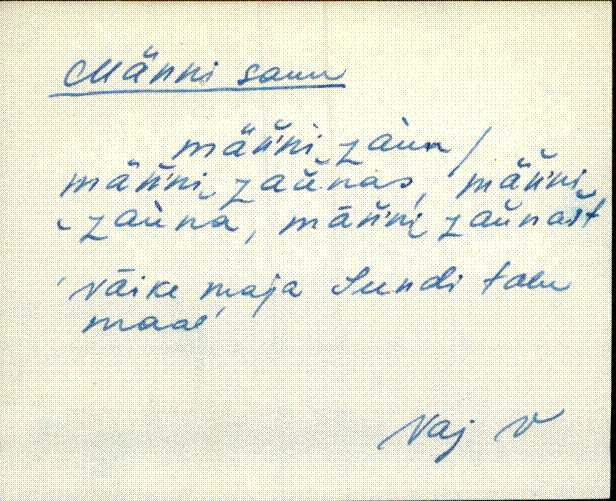 Männi saun
män̆ni‿z̀aùn /
män̆ni‿zaŭnas, män̆ni‿
‿zaùna, män̆ni‿zaŭnašt
'väike maja Sundi talu
maal'
Vaj V